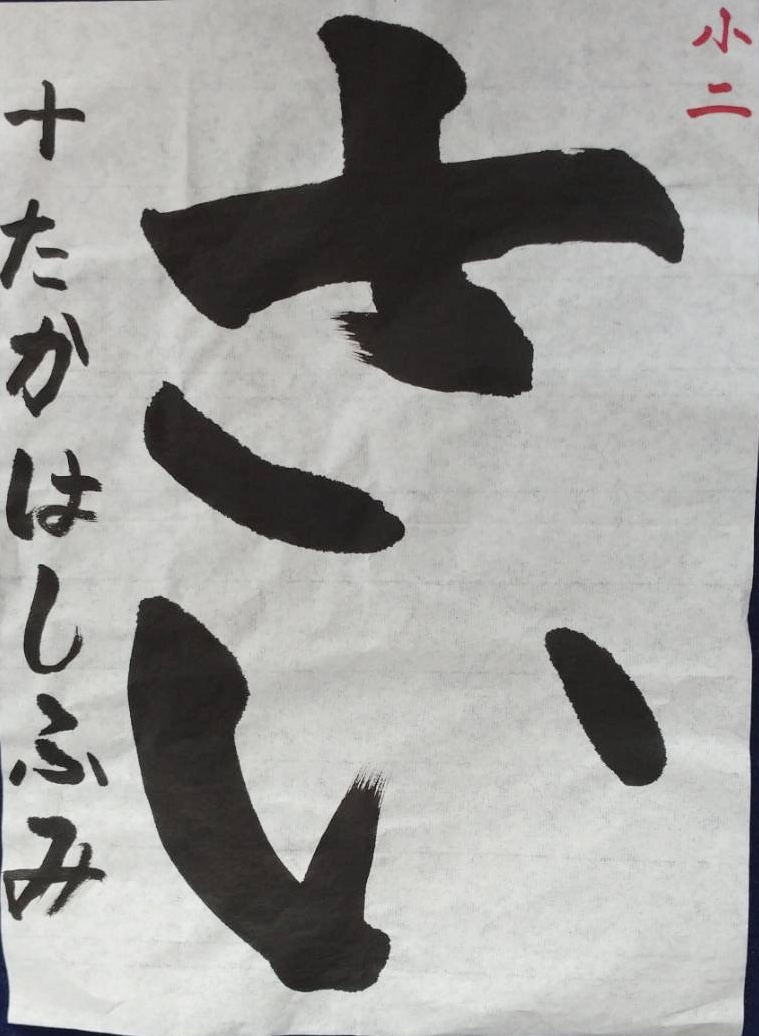 小二
さい
十たかはしふみ